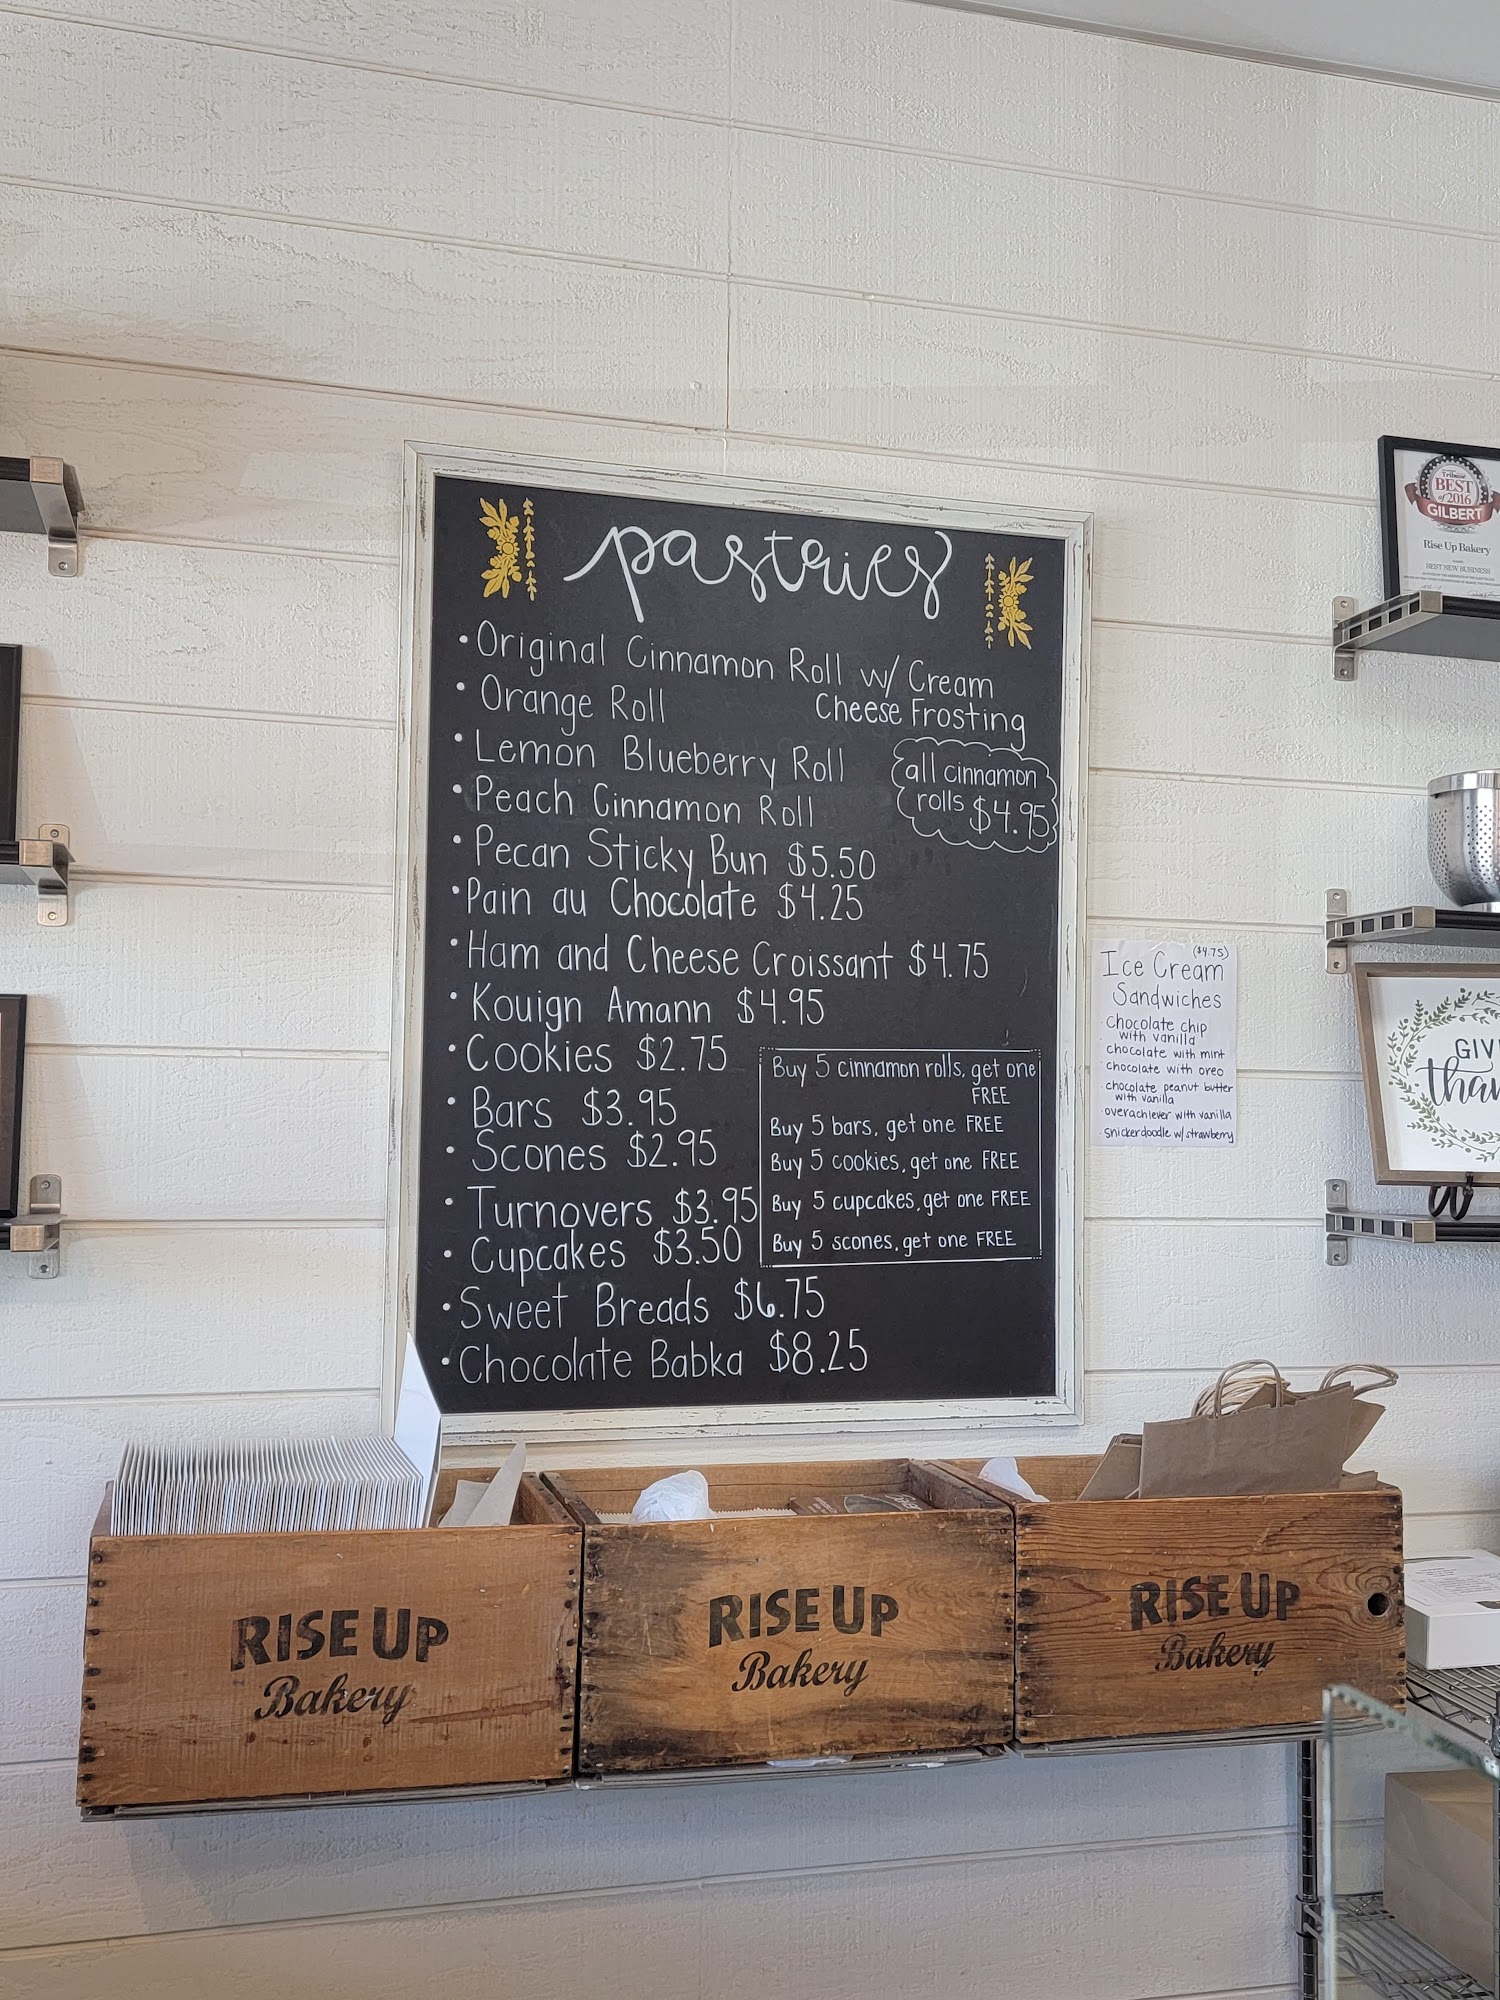 pastries
• Original Cinnamon Roll w/ Cream
Cheese Frosting
• Orange Roll
• Lemon Blueberry Roll
all cinnamon
rolls $4.95
• Peach Cinnamon Roll
• Pecan Sticky Bun $5.50
• Pain au Chocolate $4.25
• Ham and Cheese Croissant $4.75
• Kouign Amann $4.95
• Cookies $2.75
• Bars $3.95
• Scones $2.95
• Turnovers $3.95
• Cupcakes $3.50
• Sweet Breads $6.75
• Chocolate Babka $8.25
Buy 5 cinnamon rolls, get one
FREE
Buy 5 bars, get one FREE
Buy 5 cookies, get one FREE
Buy 5 cupcakes, get one FREE
Buy 5 scones, get one FREE
($4.75)
Ice Cream
Sandwiches
Chocolate chip
with vanilla
· chocolate with mint
· chocolate with oreo
· chocolate peanut butter
with vanilla
· overachiever with vanilla
· snickerdoodle w/ strawberry
Tribune
BEST
of 2016
GILBERT
Rise Up Bakery
BEST NEW BUSINESS
GIV
than
RISE UP
Bakery
RISE UP
Bakery
RISE UP
Bakery